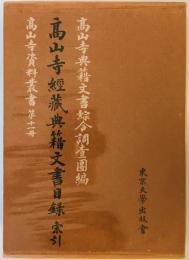 高山寺典籍文書綜合調査團編
高山寺經藏典籍文書目録 索引
高山寺資料叢書 第十一册
東京大學出版會